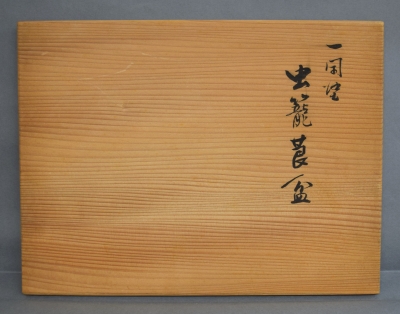 一閑塗
虫籠莨盆